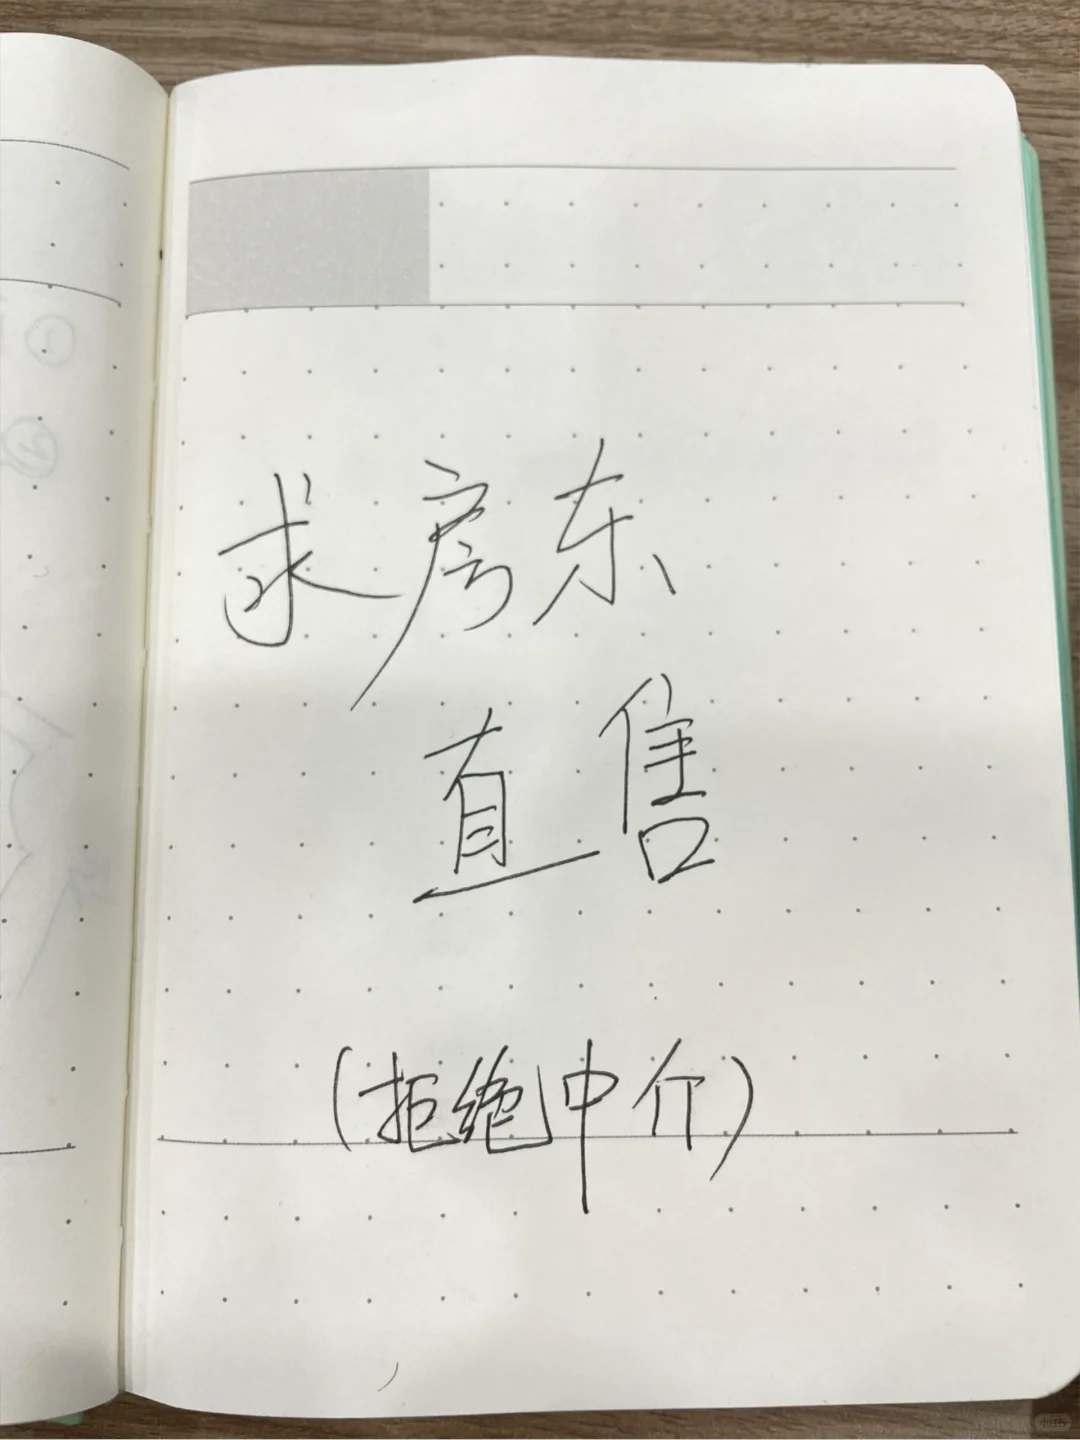 求房东
直售
(拒绝中介)